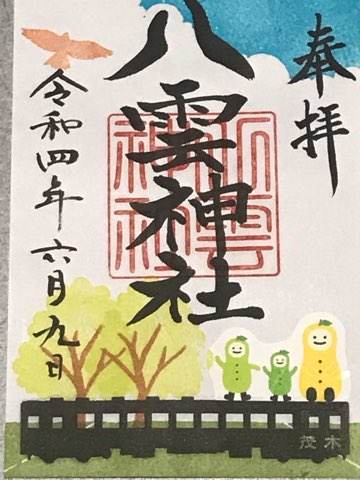 奉拝
八雲神社
八雲神社
令和四年六月九日
茂木